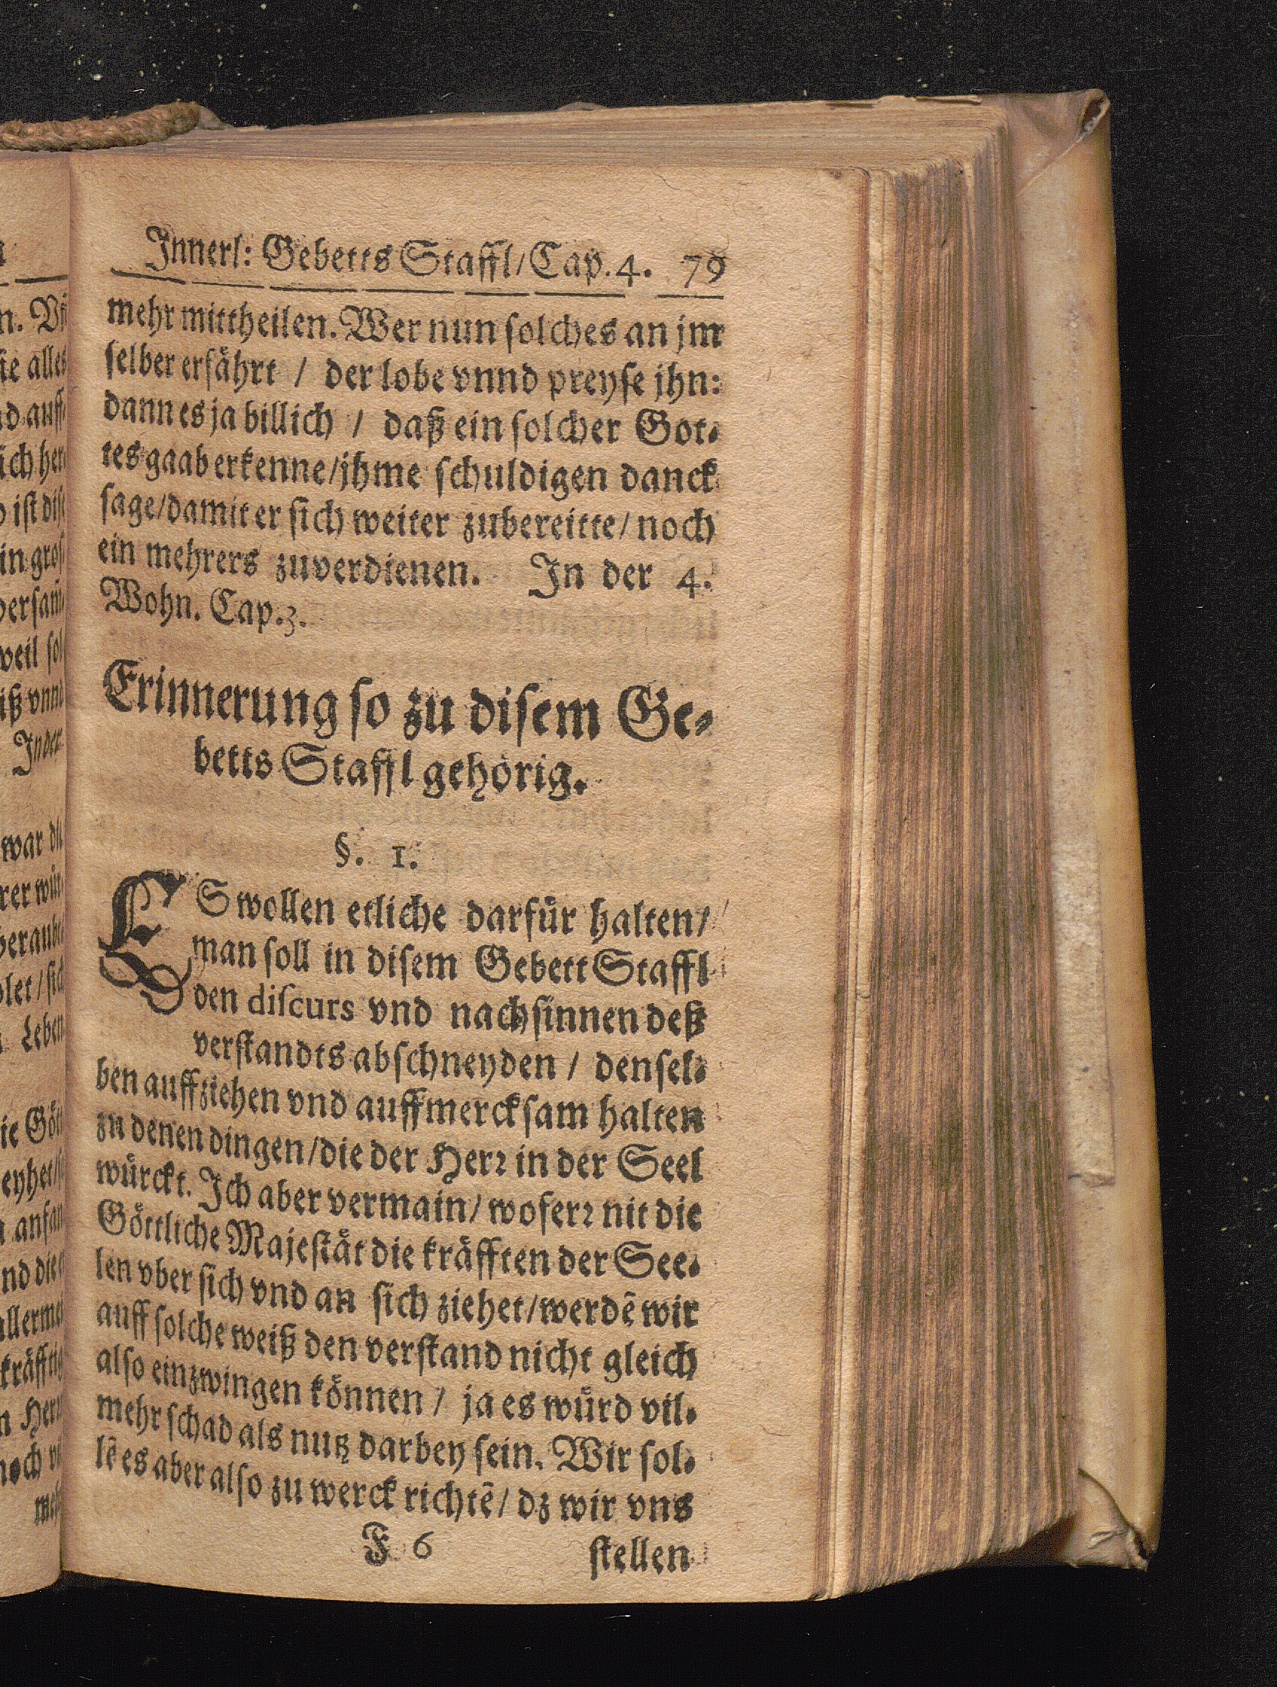 Innerl: Gebetts Staffl/Cap. 4. 79
mehr mittheilen. Wer nun solches an jm
selber erfährt / der lobe vnnd preyse jhn:
dann es ja billich / daß ein solcher Got-
tes gaab erkenne/jhme schuldigen danck
sage/damit er sich weiter zubereitte/noch
ein mehrers zuverdienen. In der 4.
Wohn. Cap. 3.
Erinnerung so zu disem Ge-
betts Staffl gehörig.
§. 1.
ES wollen etliche darfür halten/
man soll in disem Gebett Staffl
den discurs vnd nachsinnen deß
verstandts abschneyden / densel-
ben auffziehen vnd auffmercksam halten
zu denen dingen/die der Herr in der Seel
würckt. Ich aber vermain/ woferr nit die
Göttliche Majestät die kräfften der See-
len vber sich vnd an sich ziehet/werdẽ wir
auff solche weiß den verstand nicht gleich
also einzwingen können / ja es würd vil-
mehr schad als nutz darbey sein. Wir sol-
lẽ es aber also zu werck richtẽ/ dz wir vns
F 6 stellen